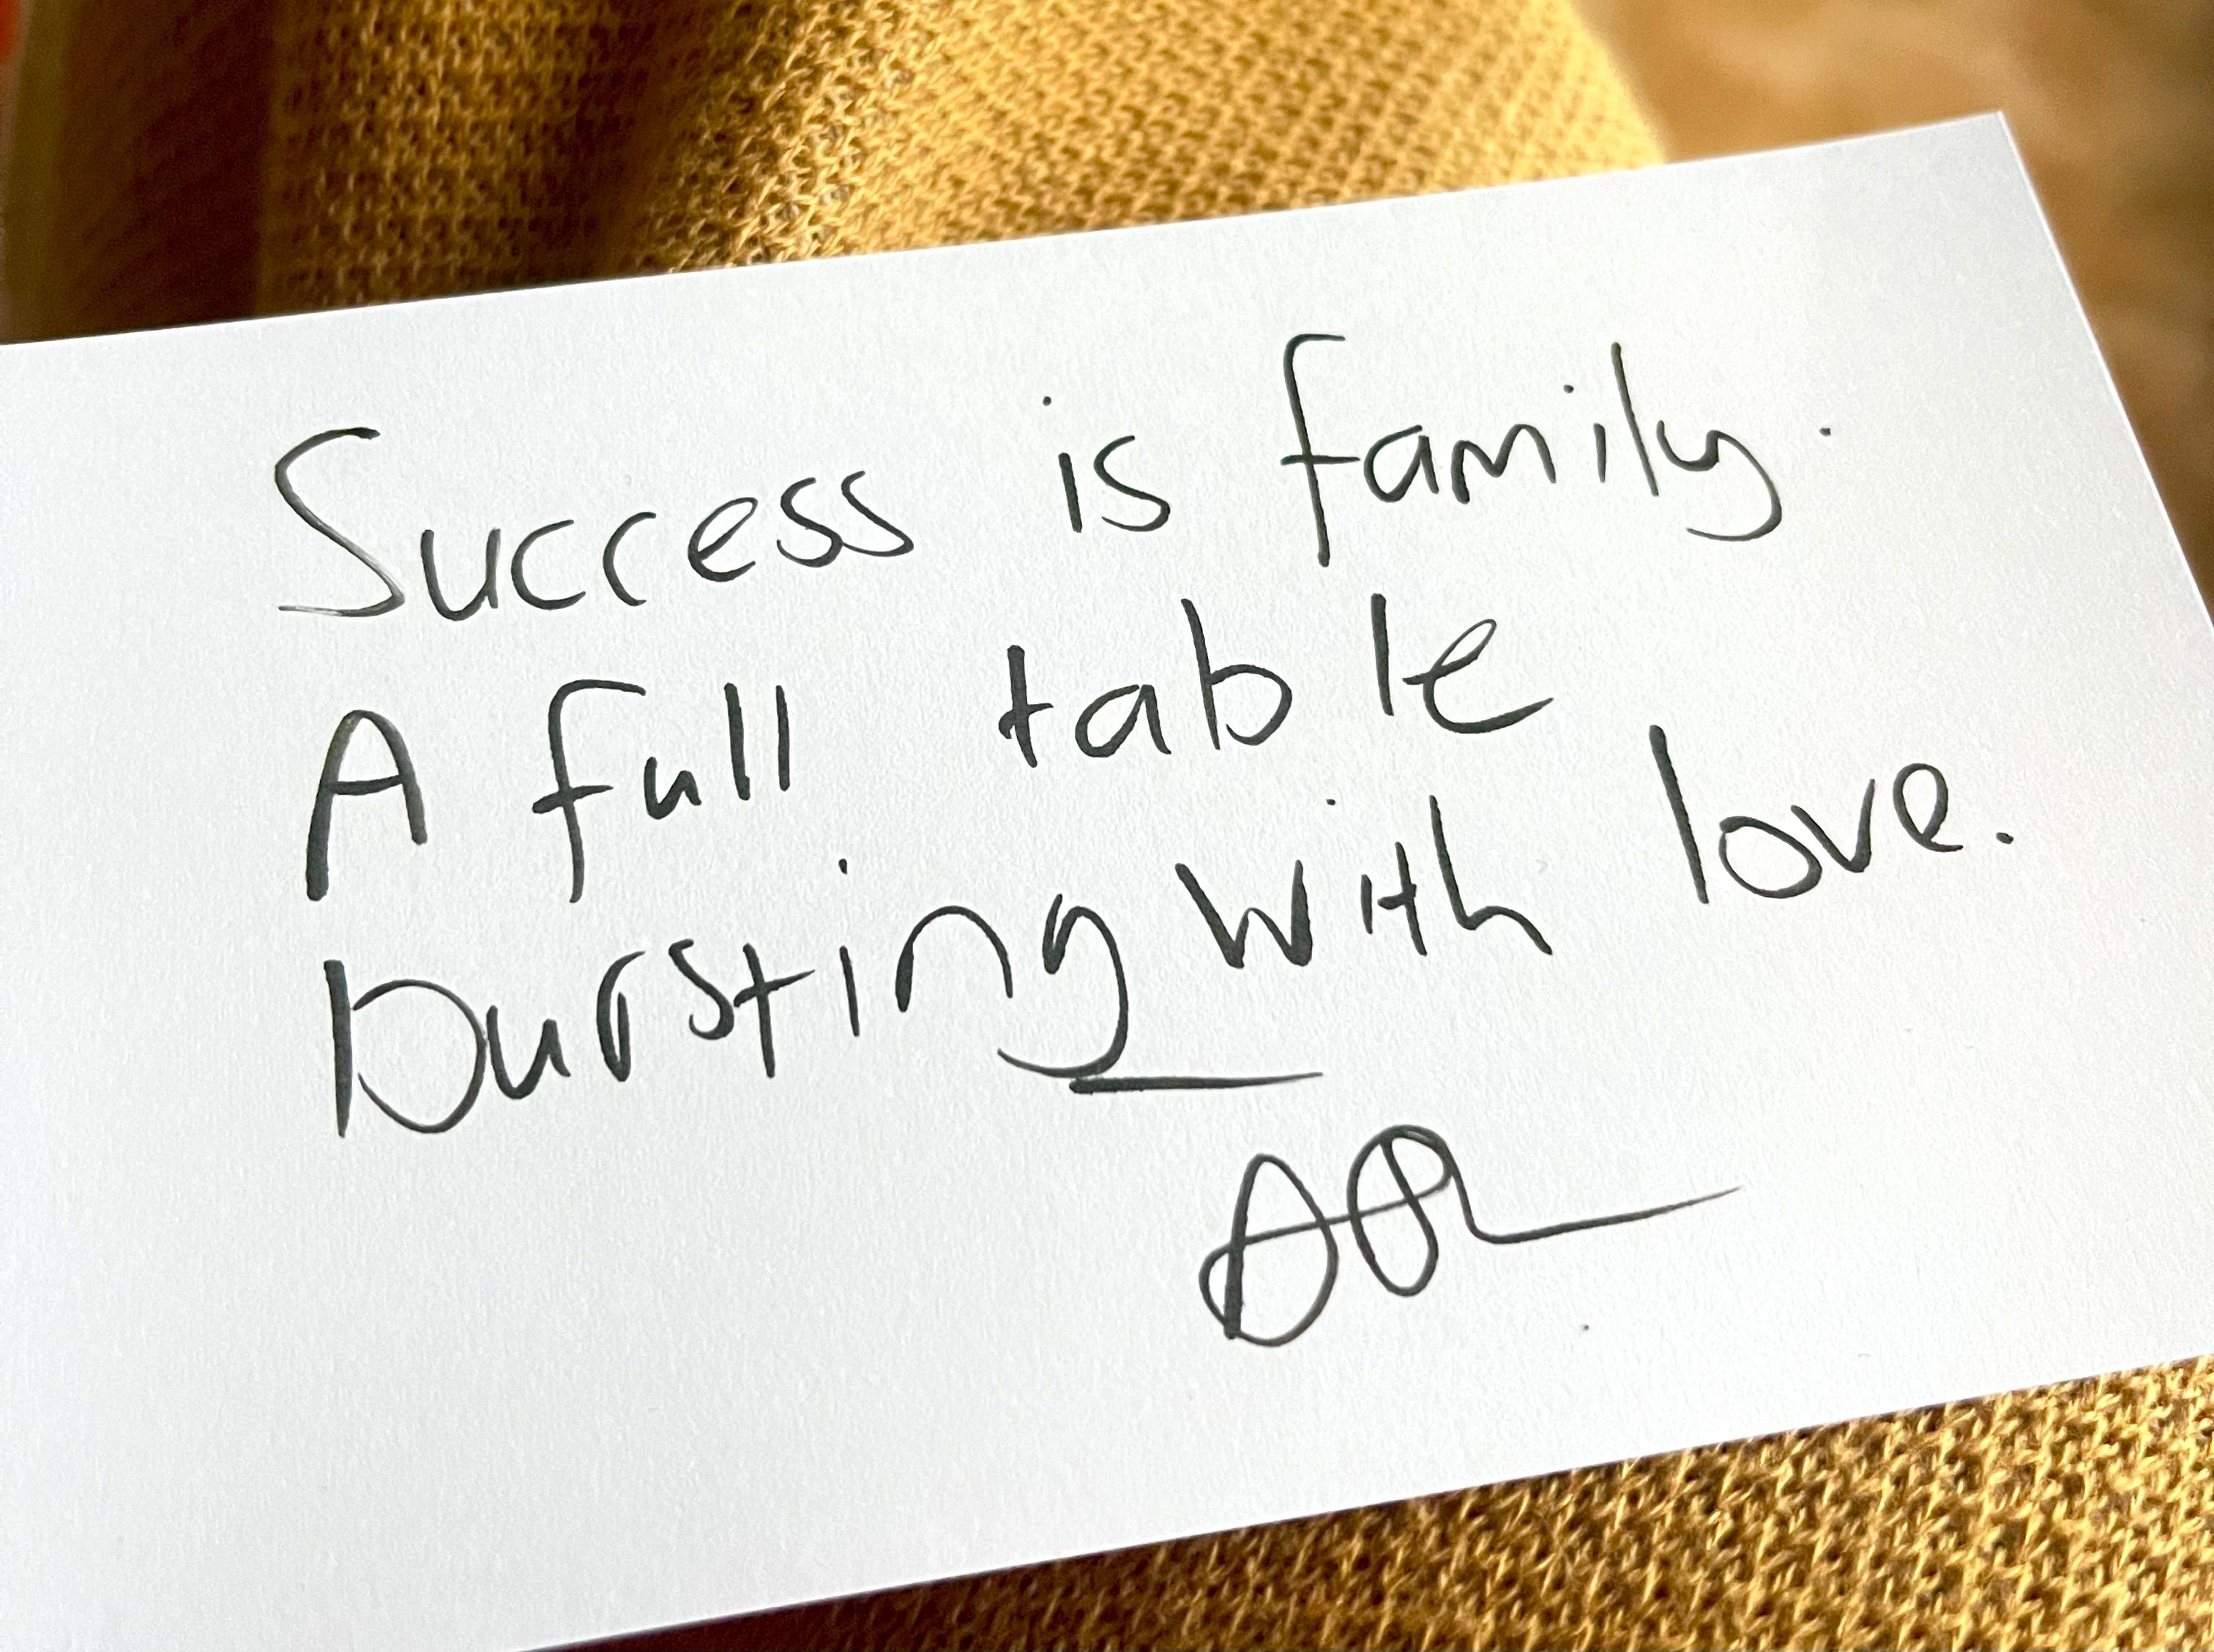 Success is family.
A full table
bursting with love.